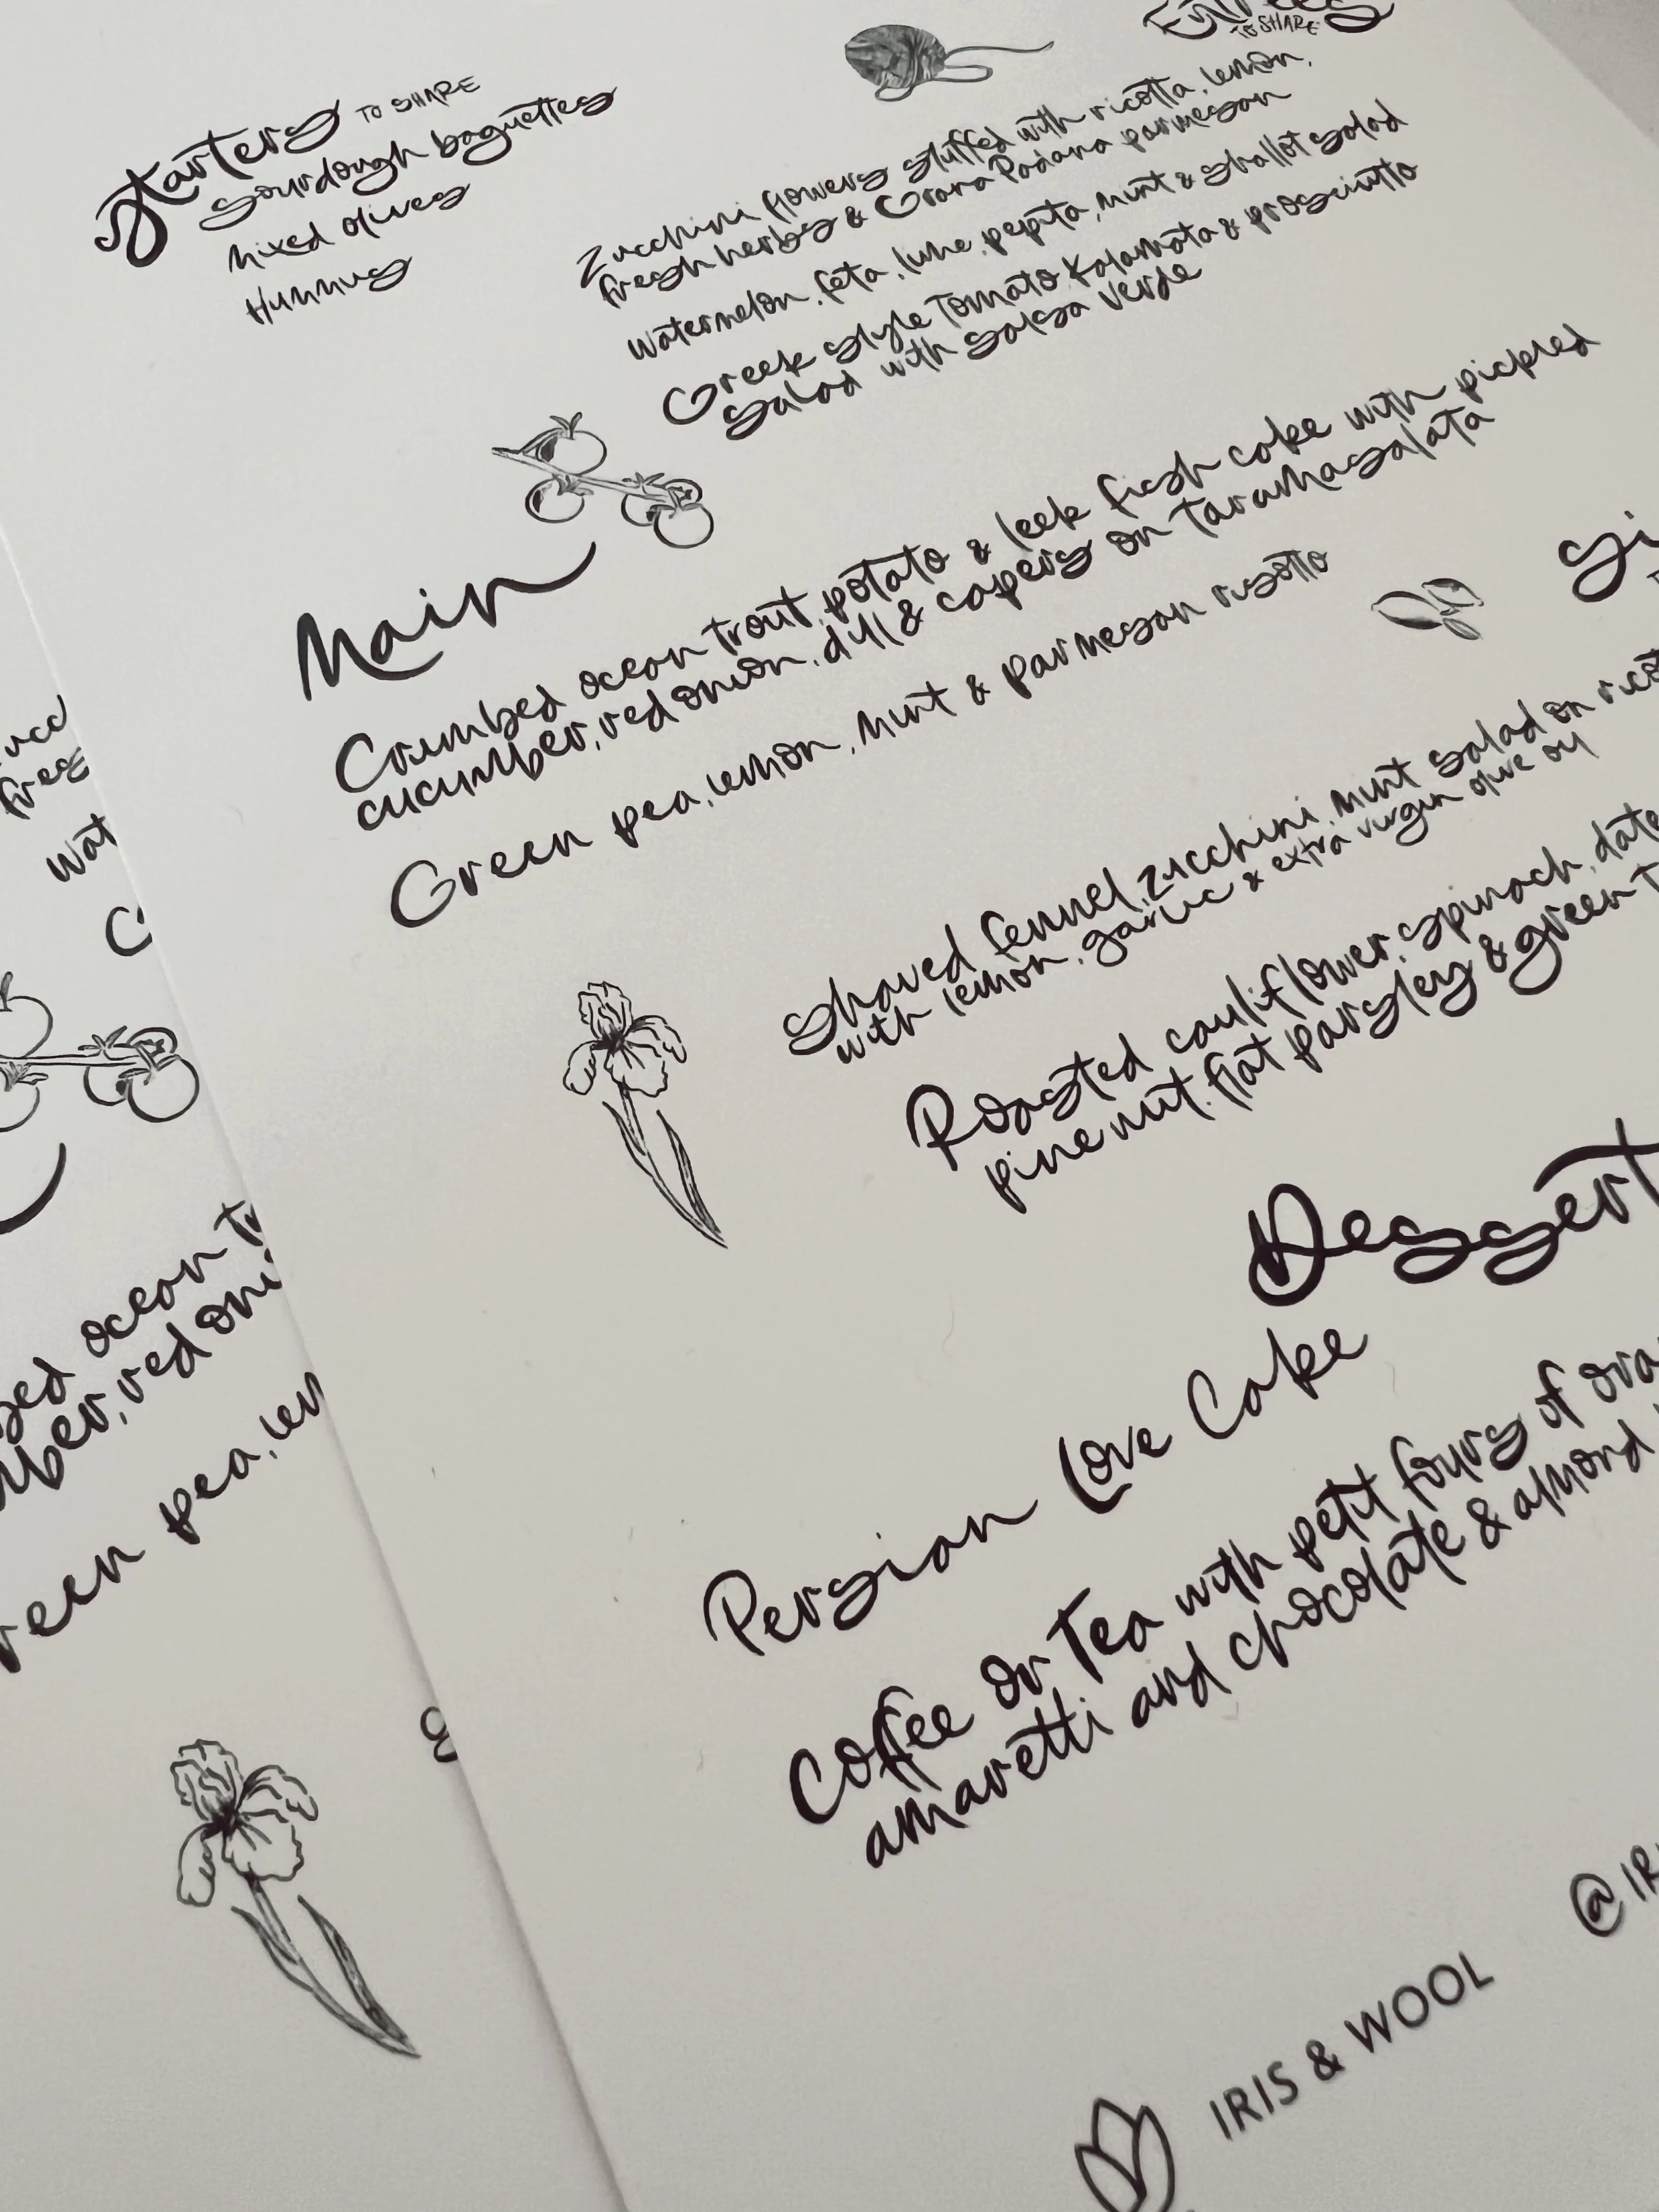 Starters TO SHARE
Sourdough baguettes
Mixed olives
Hummus
Entrees
TO SHARE
Zucchini flowers stuffed with ricotta, lemon,
fresh herbs & Grana Padana parmesan
Watermelon, feta, lime, pepita, mint & shallot salad
Greek style Tomato, Kalamata & prosciutto
salad with salsa verde
Main
Crumbed ocean trout, potato & leek fish cake with pickled
cucumber, red onion, dill & capers on taramasalata
Green pea, lemon, mint & parmesan risotto
Si
Shaved fennel, zucchini, mint salad on ricot
with lemon, garlic & extra virgin olive oil
Roasted cauliflower, spinach, date
pine nut, flat parsley & green t
Dessert
Persian Love Cake
Coffee or Tea with petit fours of ora
amaretti and chocolate & almond
@IRI
IRIS & WOOL
ucc
fres
Wat
G
bed ocean tr
mber, red oni
reen pea, lem
S